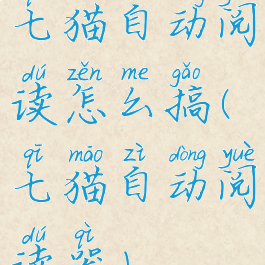 七猫自动阅
dú zěn me gǎo
读怎么搞(
qī māo zì dòng yuè
七猫自动阅
dú qì
读器)